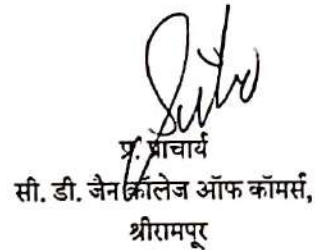 प्र. प्राचार्य
सी. डी. जैन कॉलेज ऑफ कॉमर्स,
श्रीरामपूर